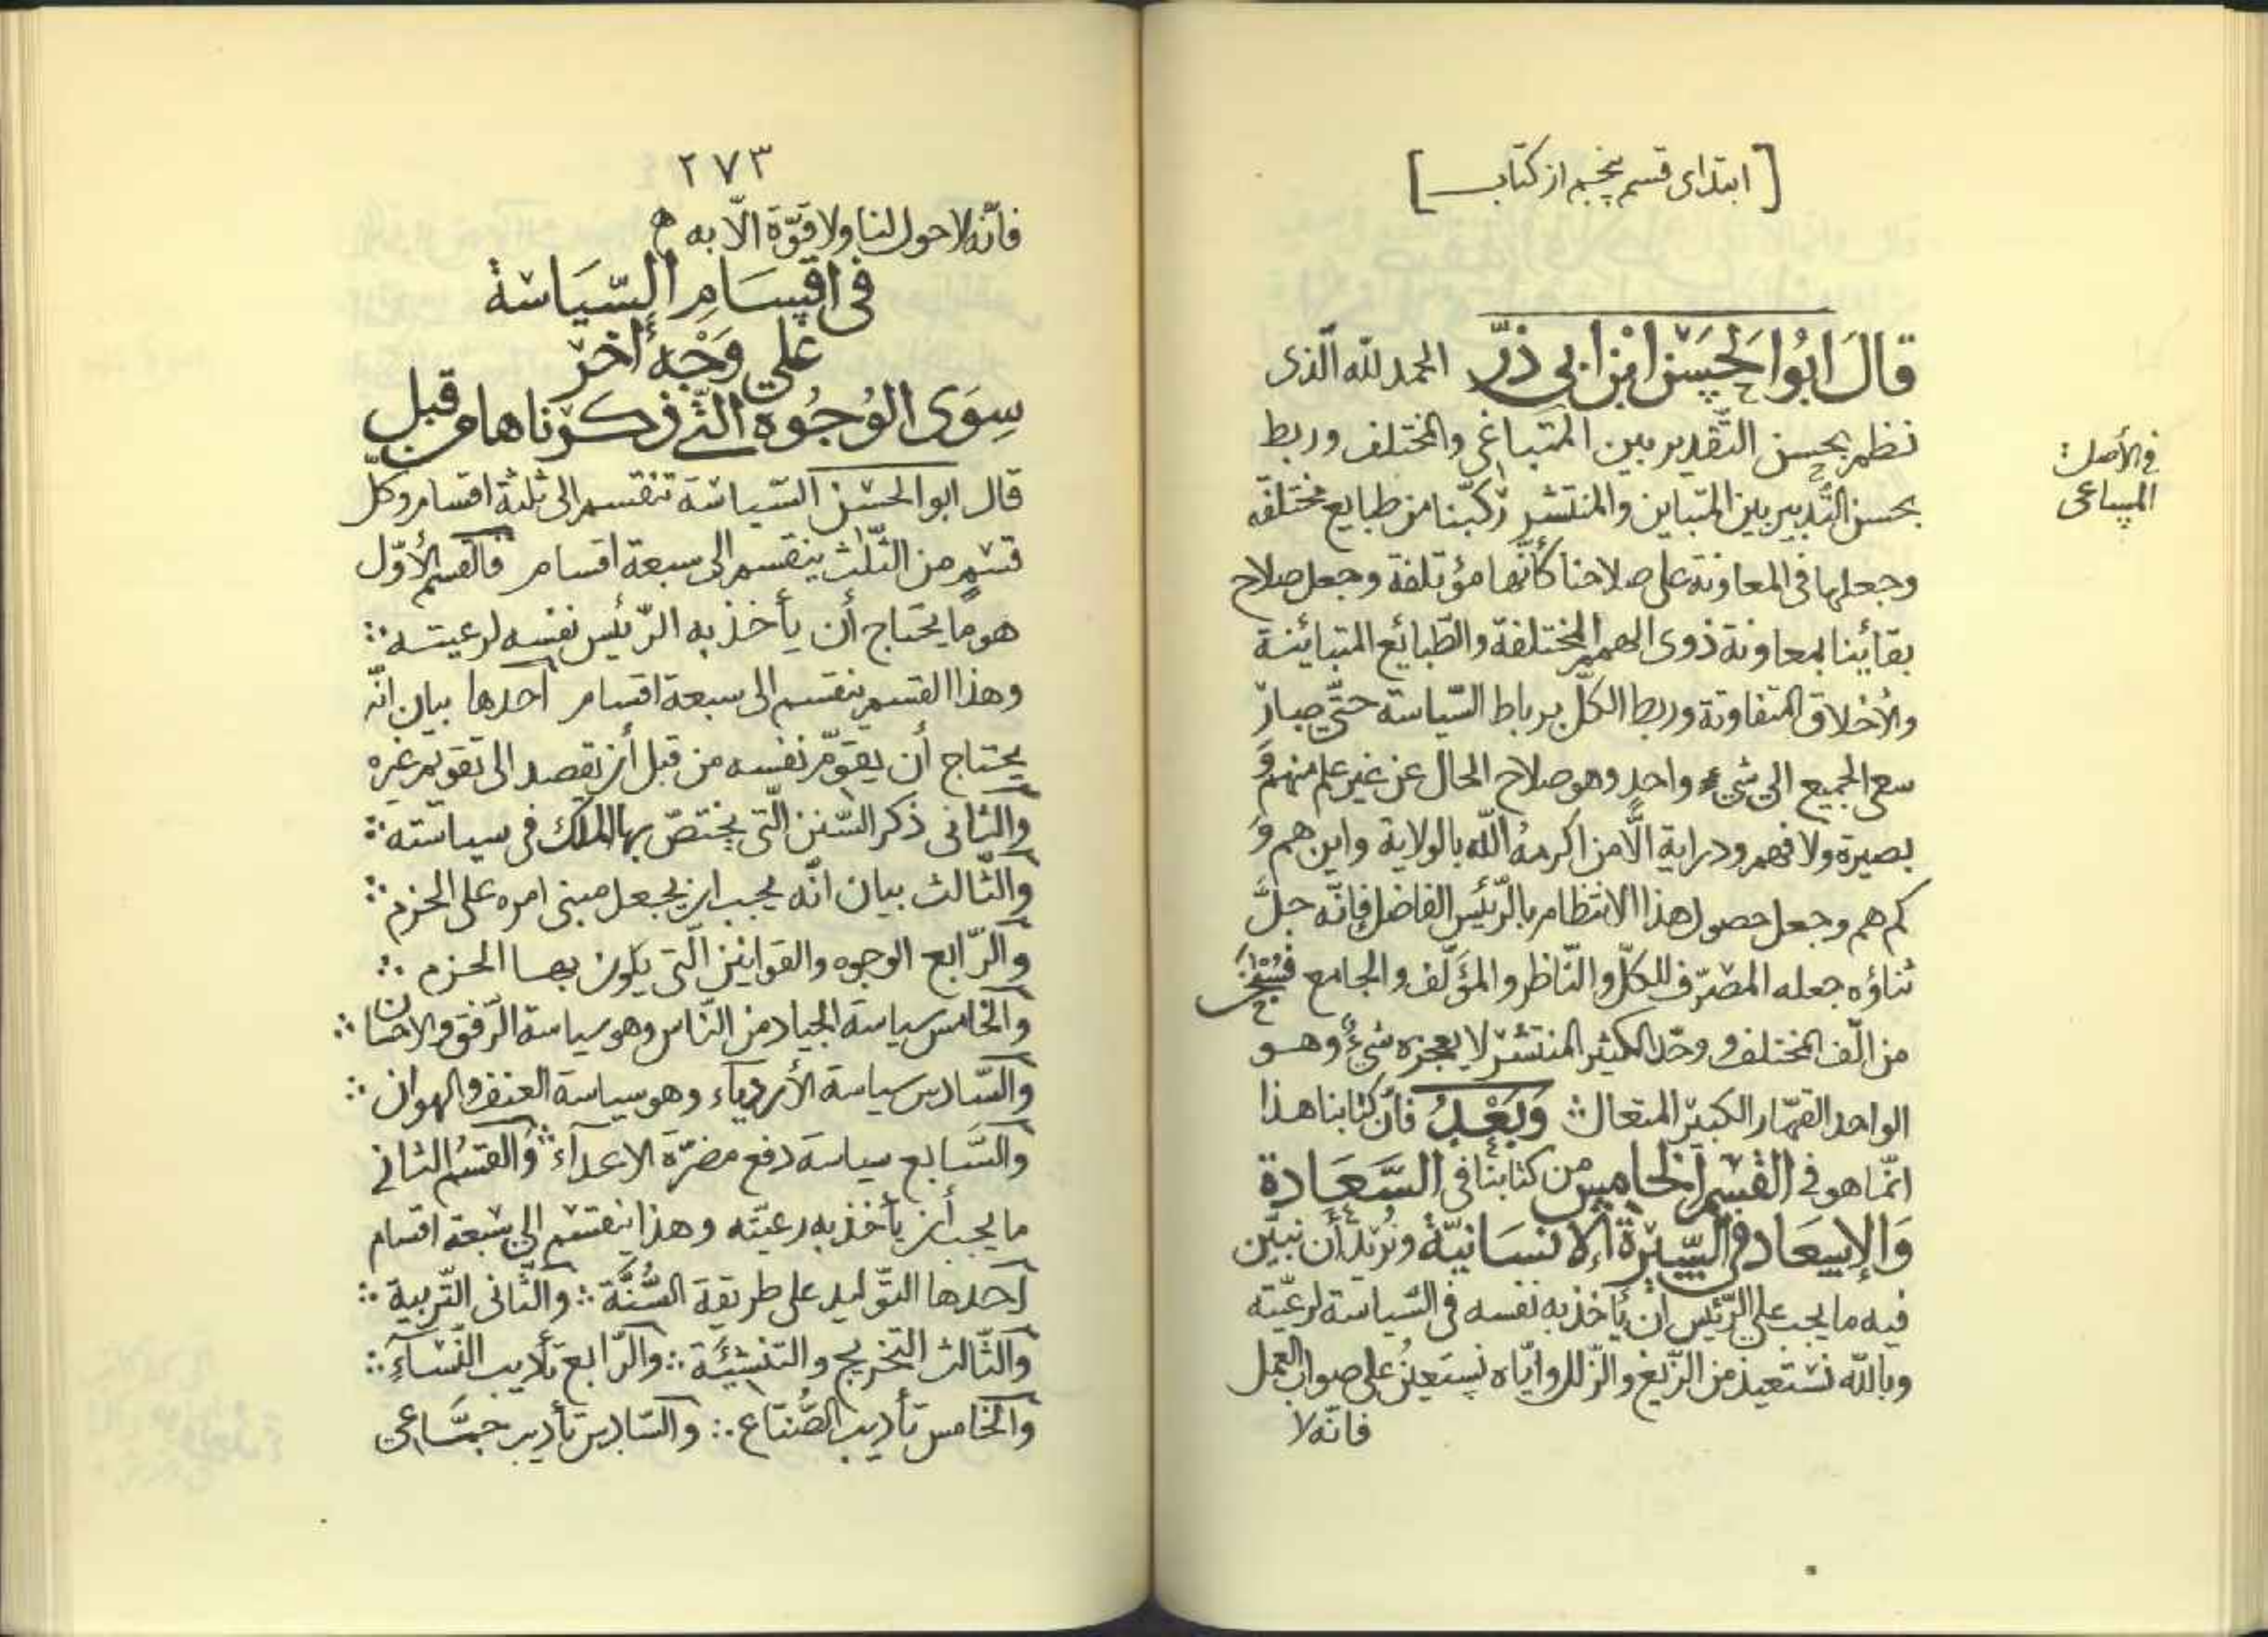 [ابتدای قسم پنجم از کتاب]
قَالَ اَبُوا الحَسَن ابْن ابي ذَرّ الحمد لله الّذى
نظم بحسن التّقدير بين المتباغى والمختلف وربط
فى الأصل: المساعى
بحسن التّدبير بين المتباين والمنتشر ركّبنا من طبايع مختلفة
وجعلها فى المعاونة على صلاحنا كأنّها مؤتلفة وجعل صلاح
بقائنا بمعاونة ذوى الهمم المختلفة والطّبائع المتبائنة
والأخلاق المتفاوتة وربط الكلّ برباط السّياسة حتّى صار
سعى الجميع الى شىء واحد وهو صلاح الحال عن غير علم منهم وَ
بصيرة ولا فهم ودراية الّا من اكرمهُ الله بالولاية واين هم وَ
كم هم وجعل حصول هذا الانتظام بالرّئيس الفاضل فإنّه جلّ
ثناؤه جعله المصرّف للكلّ والنّاظم والمؤلّف والجامع فسُبْحٰنَ
من الّف المختلف ووحّد الكثير المنتشر لا يعجزه شىءٌ وهو
الواحد القهّار الكبير المتعال وَبَعْدُ فأنّ كتابنا هذا
انّما هو فى القِسْمِ الخامِسِ من كتابنا فى السَّعَادة
وَالإسِعَاد فى السِّيرَةِ الإنسَانيّةِ ونُريدُ أن نبيّن
فيه ما يجب على الرّئيس أن يأخذ به نفسه فى السّياسة لرعيّته
وبالله نستعيذ من الزّيغ والزّلل وايّاه نستعينُ على صواب العمل
فانّه لا
٢٧٣
فانّه لا حول لنا ولا قوّة الّا به
فى اقسَامِ السّيَاسَة
عَلى وَجْه أخر
سِوَى الوُجُوه الّتى ذكرناها من قبل
قال ابو الحسن السّياسة تنقسم الى ثلثة اقسام وكلّ
قسم من الثّلٰث ينقسم الى سبعة اقسام فالقسم الأوّل
هو ما يحتاج أن يأخذ به الرّئيس نفسه لرعيته ∴
وهذا القسم ينقسم الى سبعة اقسام احدها بيان انّه
يحتاج أن يقوّم نفسه من قبل أن يقصد الى تقويم غيره
والثانى ذكر السّنن الّتى يختصّ بها الملك فى سياسته ∴
والثّالث بيان انّه يجب ان يجعل مبنى امره على الحزم ∴
والرّابع الوجوه والقوانين الّتى يكون بها الحزم ∴
والخامس سياسة الجياد من النّاس وهو سياسة الرّفق والاحسان ∴
والسّادس سياسة الأردياء وهو سياسة العنف والهوان ∴
والسّابع سياسة دفع مضرّة الاعدآء ∴ وَالقسمُ الثانى
ما يجب أن يأخذ به رعيّته وهذا ينقسم الى سبعة اقسام
احدها التّوليد على طريقة السُّنَّة ∴ والثّانى التّربية ∴
والثّالث التخريج والتنشِئَة ∴ والرّابع تأديب النّسآء ∴
والخامس تأديب الصُّنّاع ∴ والسّادس تأديب جمّاعى